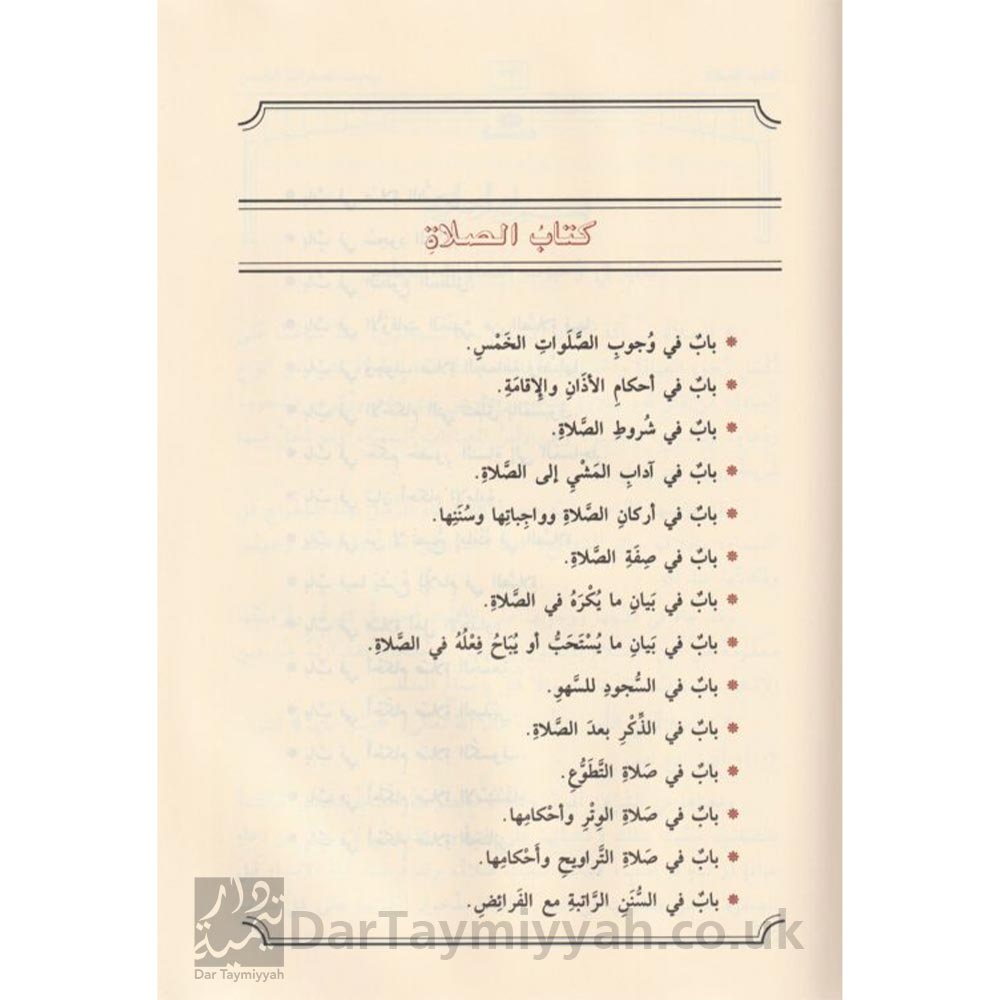 كتابُ الصلاةِ
* بابٌ في وُجوبِ الصَّلَواتِ الخَمْسِ.
* بابٌ في أحكامِ الأذَانِ والإقامَةِ.
* بابٌ في شُروطِ الصَّلاةِ.
* بابٌ في آدابِ المَشْيِ إلى الصَّلاةِ.
* بابٌ في أركانِ الصَّلاةِ وواجِباتِها وسُنَنِها.
* بابٌ في صِفَةِ الصَّلاةِ.
* بابٌ في بَيانِ ما يُكْرَهُ في الصَّلاةِ.
* بابٌ في بَيانِ ما يُسْتَحَبُّ أو يُبَاحُ فِعْلُهُ في الصَّلاةِ.
* بابٌ في السُّجودِ للسَّهوِ.
* بابٌ في الذِّكْرِ بعدَ الصَّلاةِ.
* بابٌ في صَلاةِ التَّطَوُّعِ.
* بابٌ في صَلاةِ الوِتْرِ وأحْكامِها.
* بابٌ في صَلاةِ التَّراويحِ وأَحْكامِها.
* بابٌ في السُّنَنِ الرَّاتبةِ مع الفَرائضِ.
دار تيمية
DarTaymiyyah.co.uk
Dar Taymiyyah